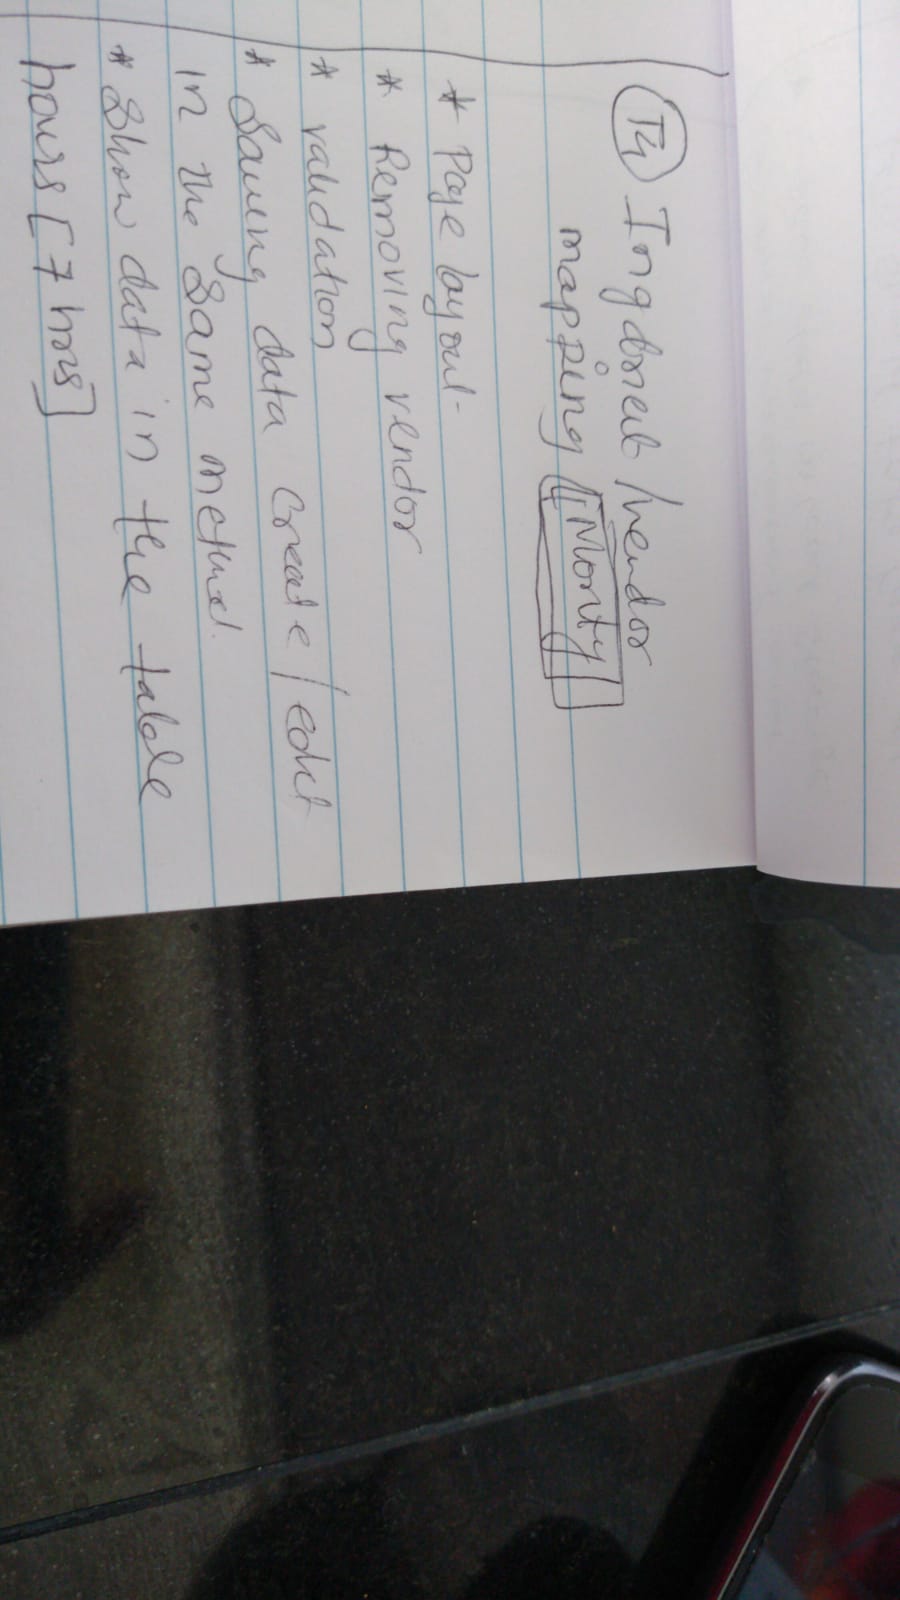 T4 Ingdrieut Vendor
mapping [Monty]
* Page layout
* Removing vendor
* validation
* Saving data Create/edit
in the Same method.
* Show data in the table
hours [7 hrs]